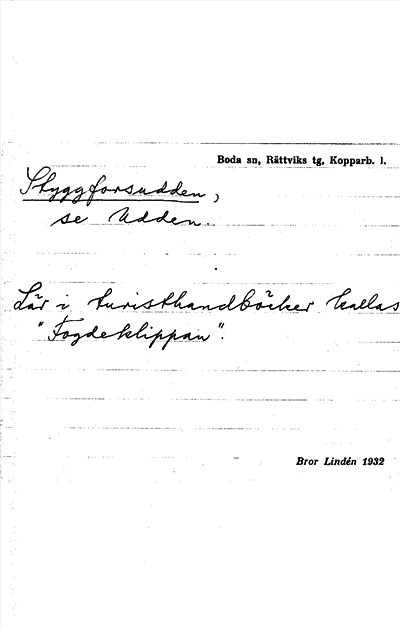 Boda sn, Rättviks tg, Kopparb. l.
Styggforsudden,
se Udden.
Lär i turisthandböcker kallas
"Fogdeklippan".
Bror Lindén 1932